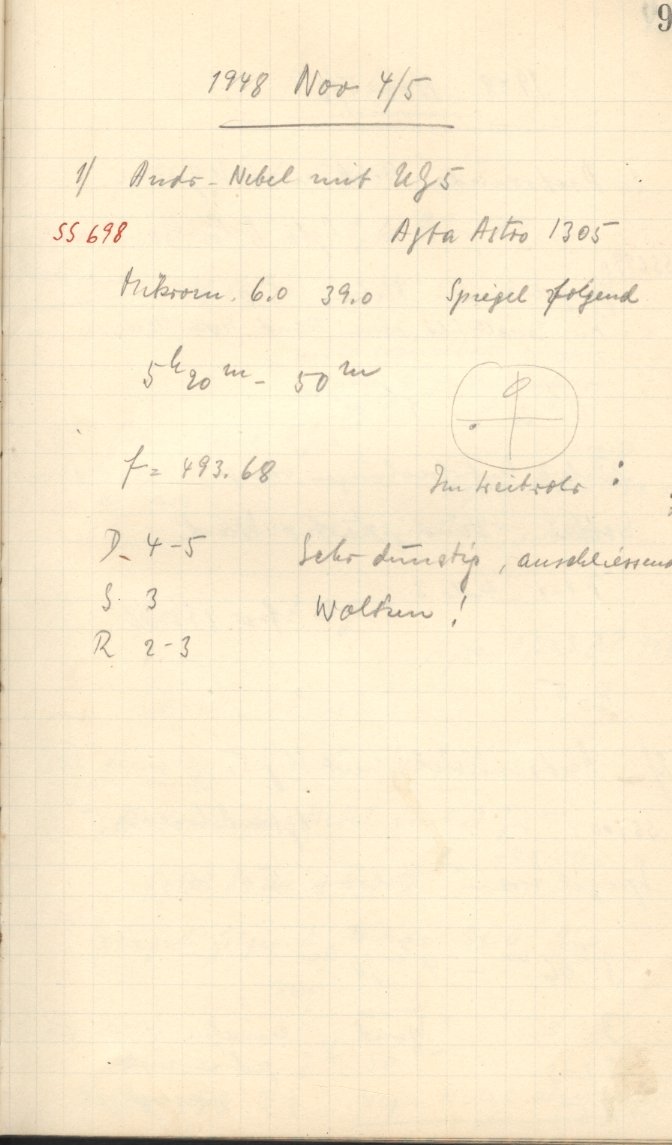 9
1948 Nov 4/5
1/ Andr-Nebel mit UG5
SS 698
Agfa Astro 1305
Mikrom. 6.0 39.0 Spiegel folgend
5h20m - 50m
f = 493.68
Im Leitrohr :
D 4-5 Sehr dunstig, anschliessend
S 3 Wolken!
R 2-3